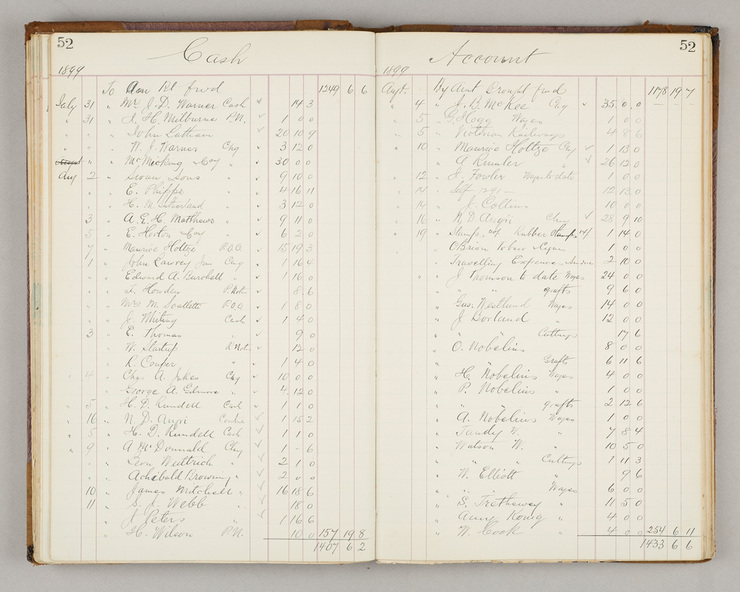 52
Cash
1899
To Am Bt frwd 1249 6 6
July 31 Mr J. D. Warner Cash 14 3
31 J. H. Milburne P.N. 1 0 0
John Latham 20 10 9
W. J. Warner Chq 3 12 0
McMecking & Coy 30 00
Aug 2 Swan Sons 9 10 0
E. Phipps 4 16 11
H. M. Sutherland 3 12 0
3 A. E. H. Matthews 9 11 0
5 E. Horton & Coy 6 2 0
7 Maurice Holtze P.O.O. 15 19 3
1 John Lawrey Jun Chq 1 16 4
Edward A. Burchett 1 16 0
Howden P. Note 8 6
Mrs M. P.O.O. 1 8 0
J. Whiting Cash 1 4 0
3 E. Thomas 9 0
W. P. Note 12 0
R. Couper 1 4 0
4 Chas A. Jukes Chq 10 0 0
George A. 4 12 0
5 H. D. Rundell Cash 1 1 0
16 N. D. Augri 1 15 2
5 H. D. Rundell Cash 1 1 0
9 A McDonnald Chq 1 - 6
Von Wuttrich 2 1 0
Achibald Browning 2 0 0
10 James 16 18 6
11 S. J. Webb 18 0
J. Peters 1 16 6
H. Wilson P.N. 10 0 157 19 8
1407 6 2
52
Account
1899
By Amt Brought frwd 1178 19 7
Augt 4 J. B. McKee Chq 35 0 0
5 G. Hogg Wages 1 0 0
5 Victorian Railways 4 8 6
10 Maurice Holtze Chq 1 13 0
A Rumler 26 12 0
12 J. Fowler Wages to date 1 0 0
14 Self 12 13 0
14 J. Collins 10 0 0
16 N. D. Augri Chq 28 9 10
19 Stamps Rubber Stamps 1 14 0
O'Brien 1 0 0
Travelling Expenses 2 10 0
J Thomson to date Wages 24 0 0
" " grafts 9 6 0
Gus. Wedlund Wages 14 0 0
J Borland 12 0 0
" " Cuttings 17 6
O. Nobelius 8 0 0
" " Graft 6 11 6
H. Nobelius Wages 4 0 0
P. Nobelius 1 0 0
" " grafts 2 12 6
A. Nobelius Wages 1 0 0
Tandy V. 7 8 4
Watson W. 10 5 0
" " Cuttings 1 11 3
W. Elliott 9 6
" " Wages 6 0 0
S. Tretheway 11 5 0
Konig 4 0 0
W. Cook 4 0 0 254 6 11
1433 6 6